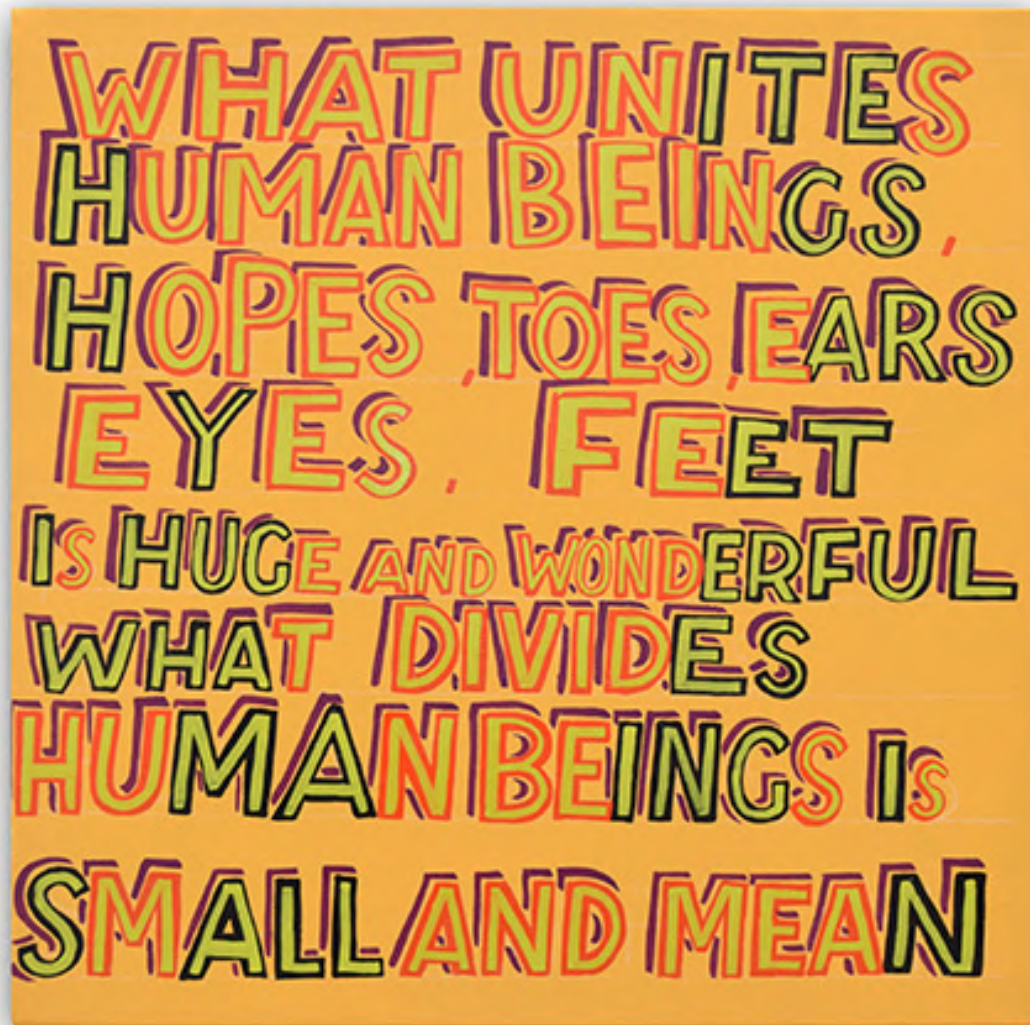 WHAT UNITES
HUMAN BEINGS,
HOPES, TOES, EARS
EYES, FEET
IS HUGE AND WONDERFUL
WHAT DIVIDES
HUMAN BEINGS IS
SMALL AND MEAN